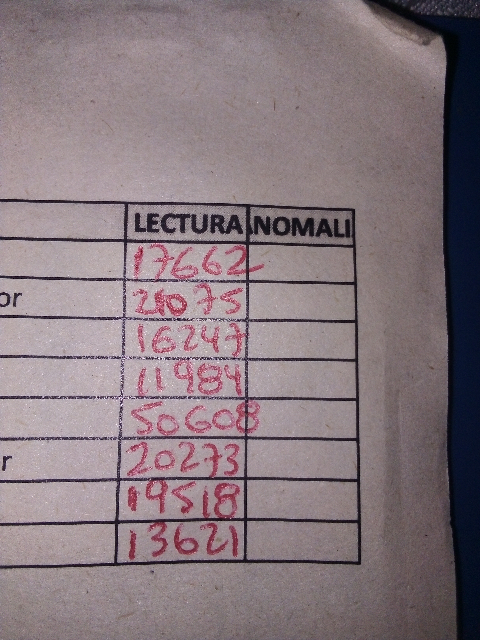 LECTURA NOMALI
17662
or 21075
16247
11984
50608
r 20273
19518
13621